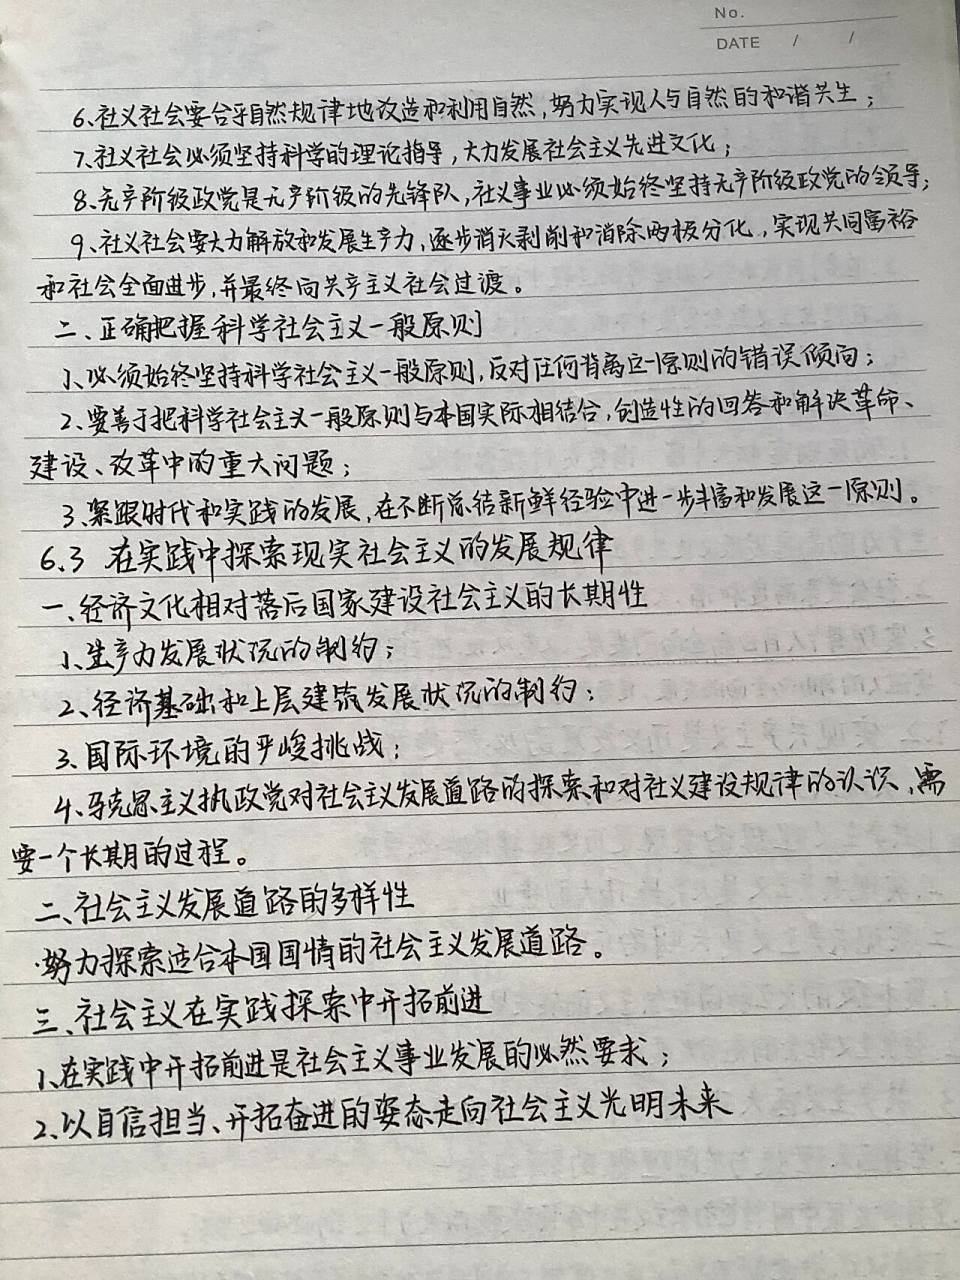 No.
DATE / /
6、社义社会要合乎自然规律地改造和利用自然,努力实现人与自然的和谐共生;
7、社义社会必须坚持科学的理论指导,大力发展社会主义先进文化;
8、无产阶级政党是无产阶级的先锋队,社义事业必须始终坚持无产阶级政党的领导;
9、社义社会要大力解放和发展生产力,逐步消灭剥削和消除两极分化,实现共同富裕
和社会全面进步,并最终向共产主义社会过渡。
二、正确把握科学社会主义一般原则
1、必须始终坚持科学社会主义一般原则,反对任何背离这一原则的错误倾向;
2、要善于把科学社会主义一般原则与本国实际相结合,创造性的回答和解决革命、
建设、改革中的重大问题;
3、紧跟时代和实践的发展,在不断总结新鲜经验中进一步丰富和发展这一原则。
6.3 在实践中探索现实社会主义的发展规律
一、经济文化相对落后国家建设社会主义的长期性
1、生产力发展状况的制约;
2、经济基础和上层建筑发展状况的制约;
3、国际环境的严峻挑战;
4、马克思主义执政党对社会主义发展道路的探索和对社义建设规律的认识,需
要一个长期的过程。
二、社会主义发展道路的多样性
·努力探索适合本国国情的社会主义发展道路。
三、社会主义在实践探索中开拓前进
1、在实践中开拓前进是社会主义事业发展的必然要求;
2、以自信担当、开拓奋进的姿态走向社会主义光明未来